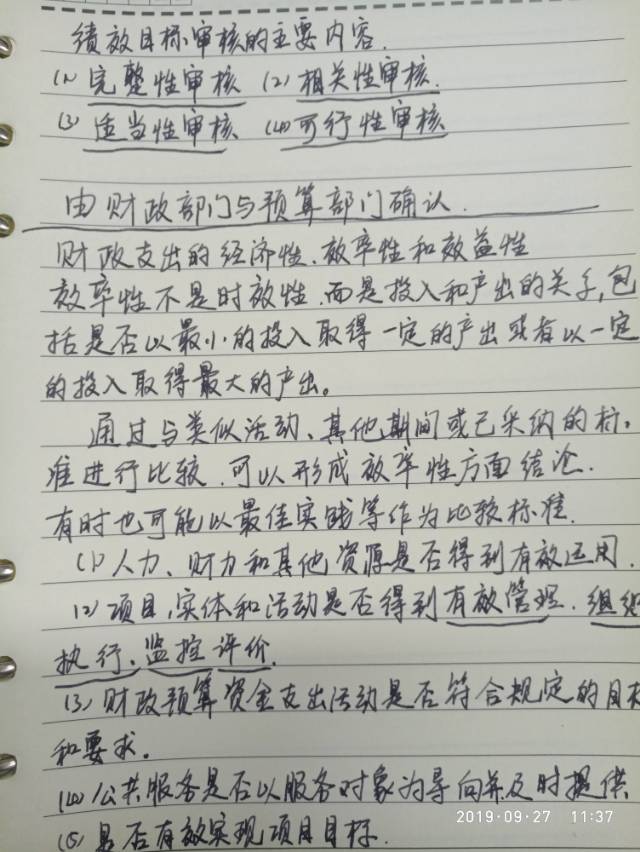 绩效目标审核的主要内容.
(1) 完整性审核 (2) 相关性审核.
(3) 适当性审核 (4) 可行性审核
由财政部门与预算部门确认.
财政支出的经济性、效率性和效益性
效率性不是时效性,而是投入和产出的关系,包
括是否以最小的投入取得一定的产出或者以一定
的投入取得最大的产出。
通过与类似活动、其他期间或已采纳的标
准进行比较,可以形成效率性方面结论.
有时也可能以最佳实践等作为比较标准.
(1)人力、财力和其他资源是否得到有效运用.
(2)项目,实体和活动是否得到有效管理、组织
执行、监控评价.
(3)财政预算资金支出活动是否符合规定的目标
和要求。
(4)公共服务是否以服务对象为导向并及时提供
(5)是否有效实现项目目标.
2019·09·27 11:37